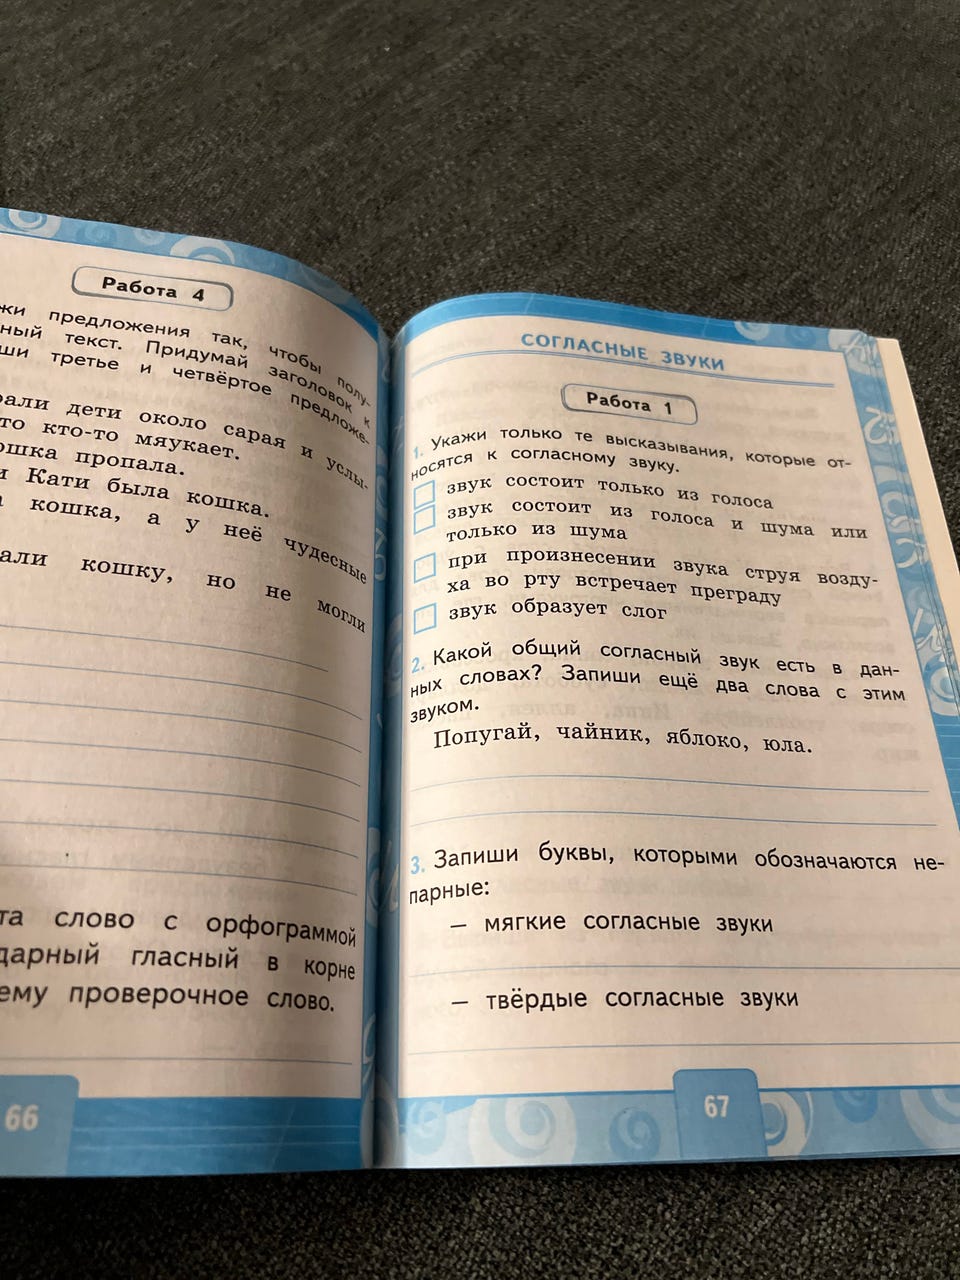 Работа 4
предложения так, чтобы полу-
текст. Придумай заголовок к
третье и четвёртое предложе-
дети около сарая и услы-
кто-то мяукает.
пропала.
Кати была кошка.
кошка, а у неё чудесные
кошку, но не могли
слово с орфограммой
гласный в корне
проверочное слово.
66
СОГЛАСНЫЕ ЗВУКИ
Работа 1
1. Укажи только те высказывания, которые от-
носятся к согласному звуку.
звук состоит только из голоса
звук состоит из голоса и шума или
только из шума
при произнесении звука струя возду-
ха во рту встречает преграду
звук образует слог
2. Какой общий согласный звук есть в дан-
ных словах? Запиши ещё два слова с этим
звуком.
Попугай, чайник, яблоко, юла.
3. Запиши буквы, которыми обозначаются не-
парные:
— мягкие согласные звуки
— твёрдые согласные звуки
67